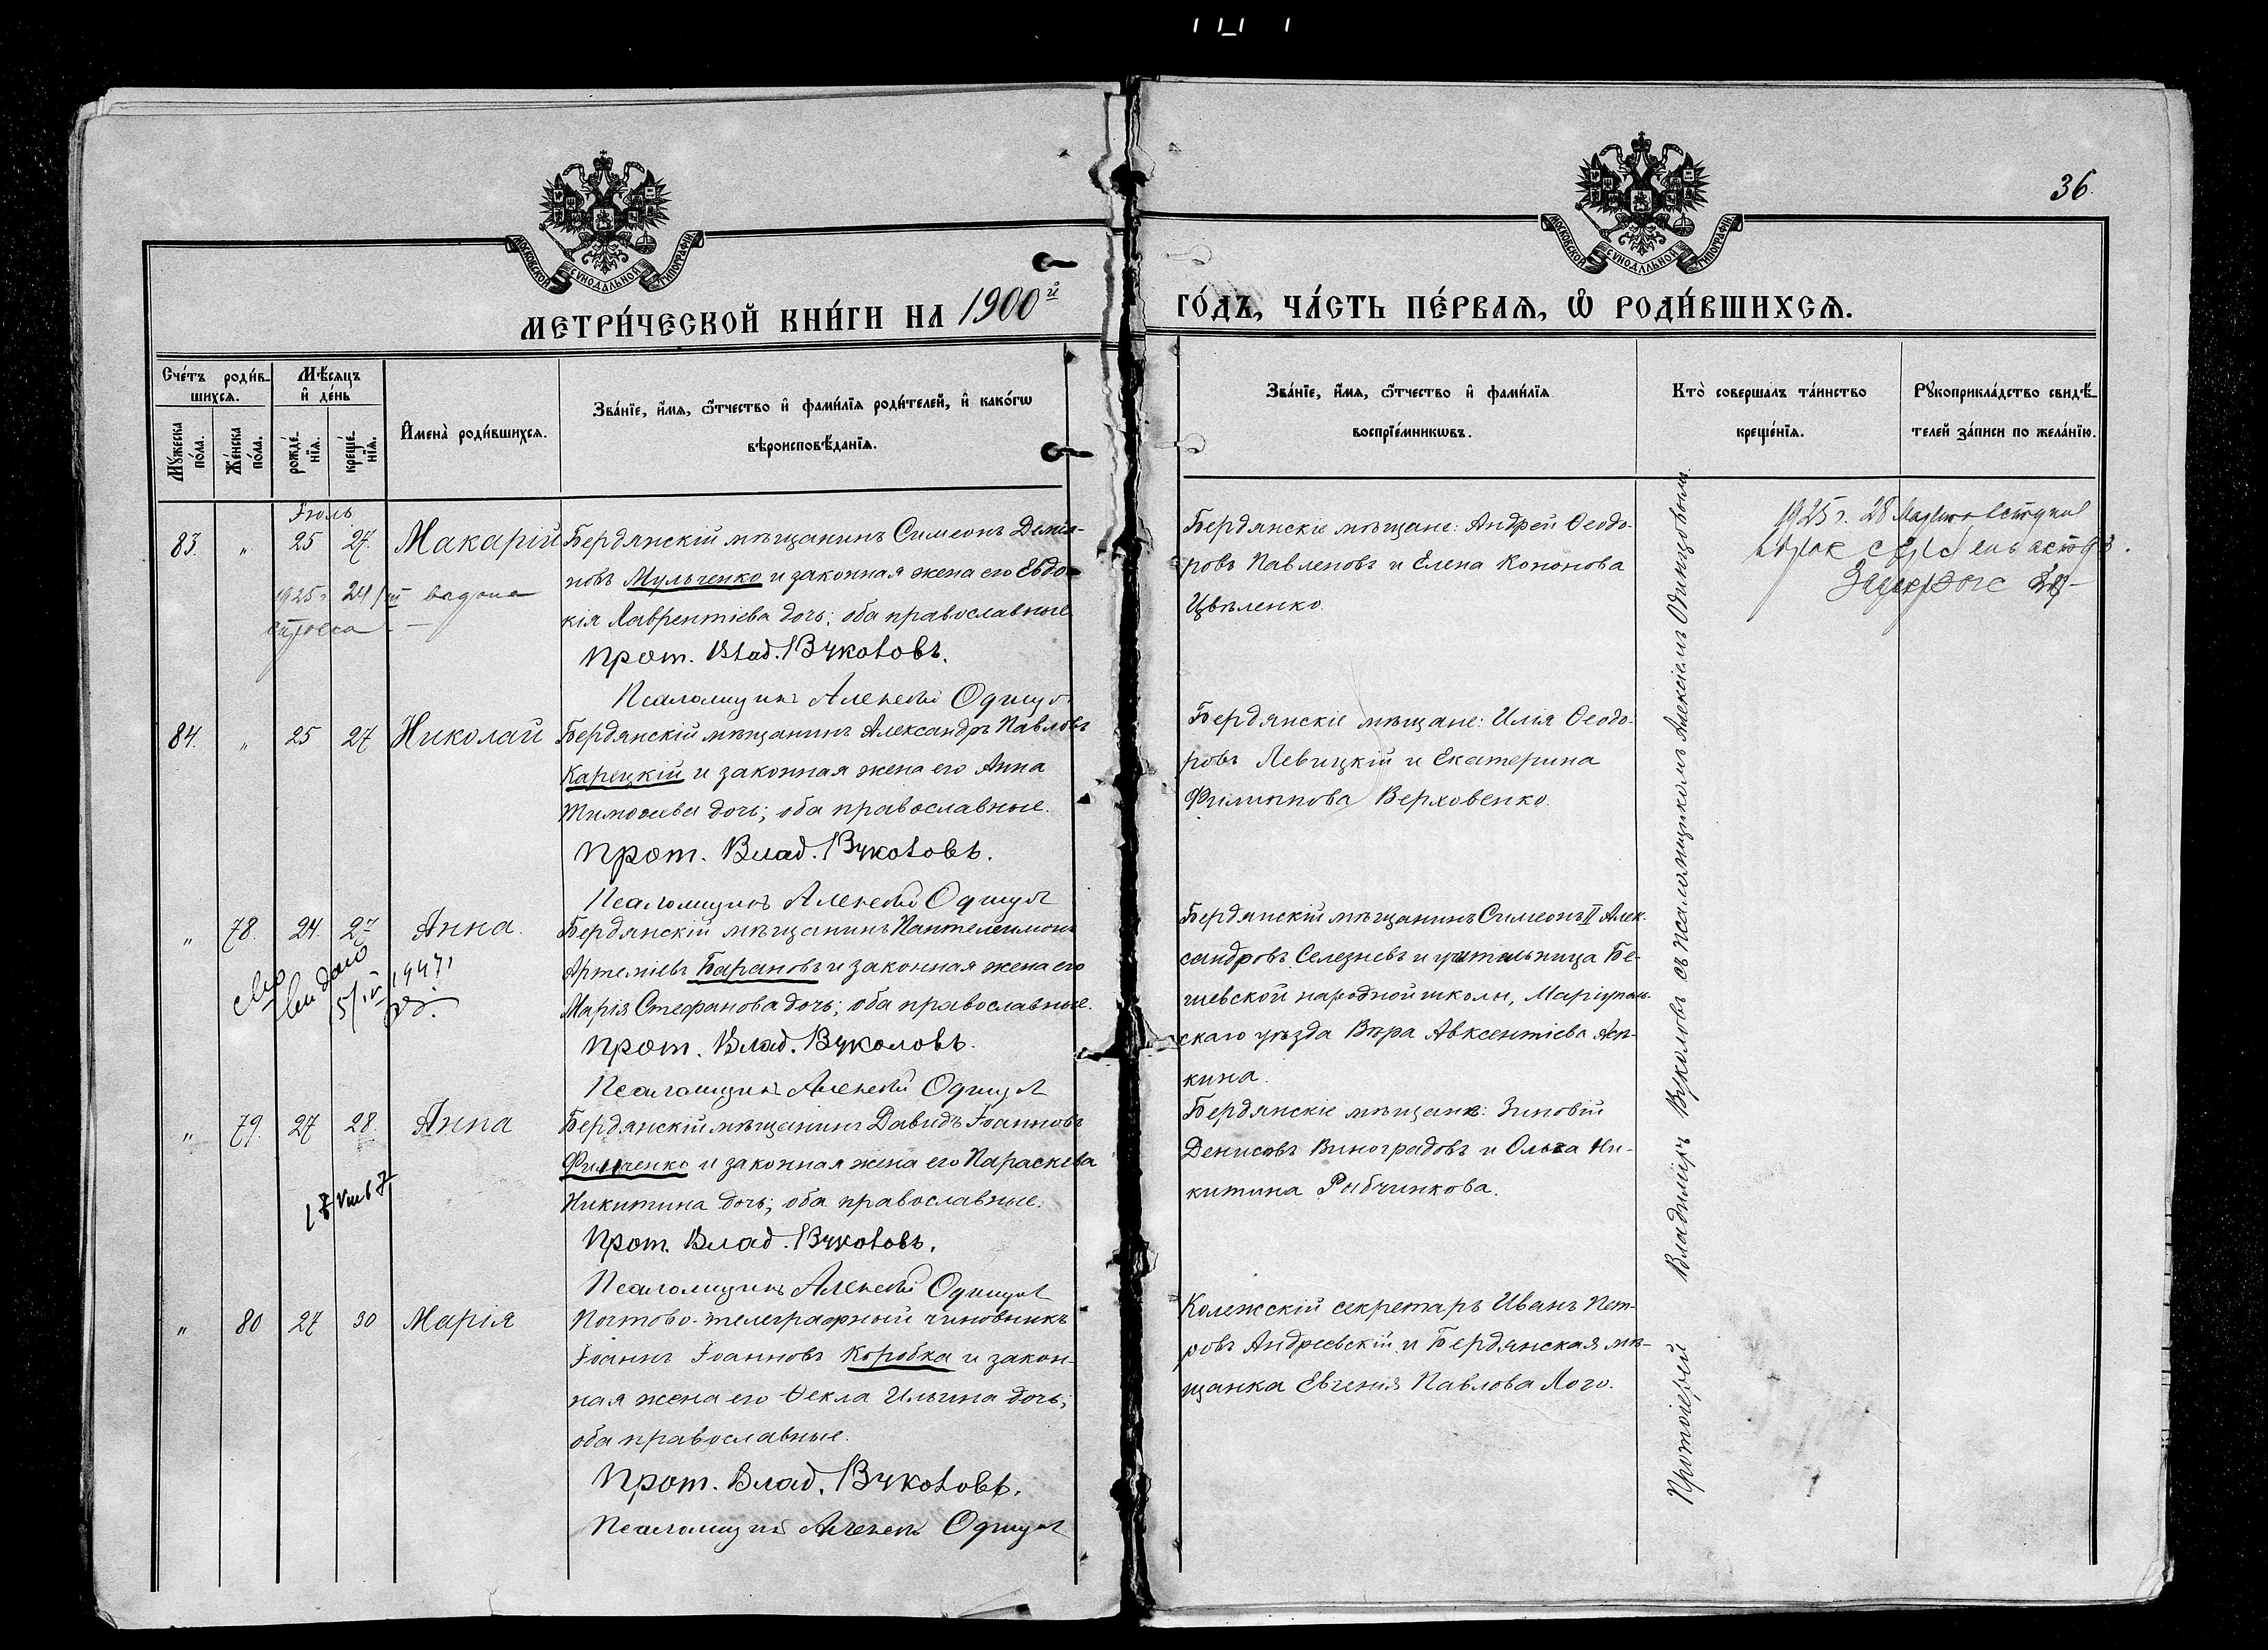 36.
МОСКОВСКОЙ СѴНОДАЛЬНОЙ ТИПОГРАФІИ
МОСКОВСКОЙ СѴНОДАЛЬНОЙ ТИПОГРАФІИ
МЕТРИ́ЧЕСКОЙ КНИ́ГИ НА 1900й
ГО́ДЪ, ЧА́СТЬ ПЕ́РВАѦ, Ѽ РОДИ́ВШИХСѦ.
Сче́тъ роди́в-
шихсѧ.
Мꙋ́жеска по́ла.
Же́нска по́ла.
Мѣ́сѧцъ
и҆ де́нь
рожде́-
нїѧ.
креще́-
нїѧ.
И҆мена̀ роди́вшихсѧ.
Зва́нїе, и҆́мѧ, ѻ҆́тчество и҆ фами́лїѧ роди́телей, и҆ како́гѡ
вѣроисповѣ́данїѧ.
Зва́нїе, и҆́мѧ, ѻ҆́тчество и҆ фами́лїѧ
воспрїе́мникѡвъ.
Кто̀ соверша́лъ та́инство
креще́нїѧ.
Рꙋкоприкла́дство свидѣ́-
телей за́писи по жела́нїю.
Іюль
83. " 25 27. Макарій
Бердянскій мѣщанинъ Симеонъ Демія-
новъ Мульченко и законная жена его Евдо-
кія Лаврентіева дочь; оба православные
Прот. Влад. Вуколовъ.
Псаломщикъ Алексѣй Одинцов
1925 г. 24/III выдана
Бердянскіе мѣщане: Андрей Ѳеодо-
ровъ Павленовъ и Елена Кононова
Цвѣленко.
1925 г. 28
84. " 25 27 Николай
Бердянскій мѣщанинъ Александръ Павловъ
Карецкій и законная жена его Анна
Тимоѳеева дочь; оба православные.
Прот. Влад. Вуколовъ.
Псаломщикъ Алексѣй Одинцов
Бердянскіе мѣщане: Илія Ѳеодо-
ровъ Левицкій и Екатерина
Филиппова Верховенко.
" 78. 24. 27 Анна.
Бердянскій мѣщанинъ Пантелеимонъ
Артеміевъ Барановъ и законная жена его
Марія Стефанова дочь; оба православные.
Прот. Влад. Вуколовъ.
Псаломщикъ Алексѣй Одинцов
15/IV 1947 г
Бердянскій мѣщанинъ Симеонъ II Алек-
сандровъ Селезневъ и учительница Бе-
шевской народной школы, Маріуполь-
скаго уѣзда Вѣра Авксентіева
кина.
" 79. 27 28. Анна
Бердянскій мѣщанинъ Давидъ Іоанновъ
Фильченко и законная жена его Параскева
Никитина дочь; оба православные.
Прот. Влад. Вуколовъ.
Псаломщикъ Алексѣй Одинцов
Бердянскіе мѣщане: Зиновій
Денисовъ Виноградовъ и Ольга Ни-
китина Рыбчинкова.
" 80 27 30 Марія
Почтово-телеграфный чиновникъ
Іоаннъ Іоанновъ Коробка и закон-
ная жена его Ѳекла Ильина дочь;
оба православные.
Прот. Влад. Вуколовъ.
Псаломщикъ Алексѣй Одинцов
Колежскій секретарь Иванъ Пет-
ровъ Андреевскій и Бердянская мѣ-
щанка Евгенія Павлова Лого.
Протоіерей Владиміръ Вуколовъ съ псаломщикомъ Алексіемъ Одинцовымъ.